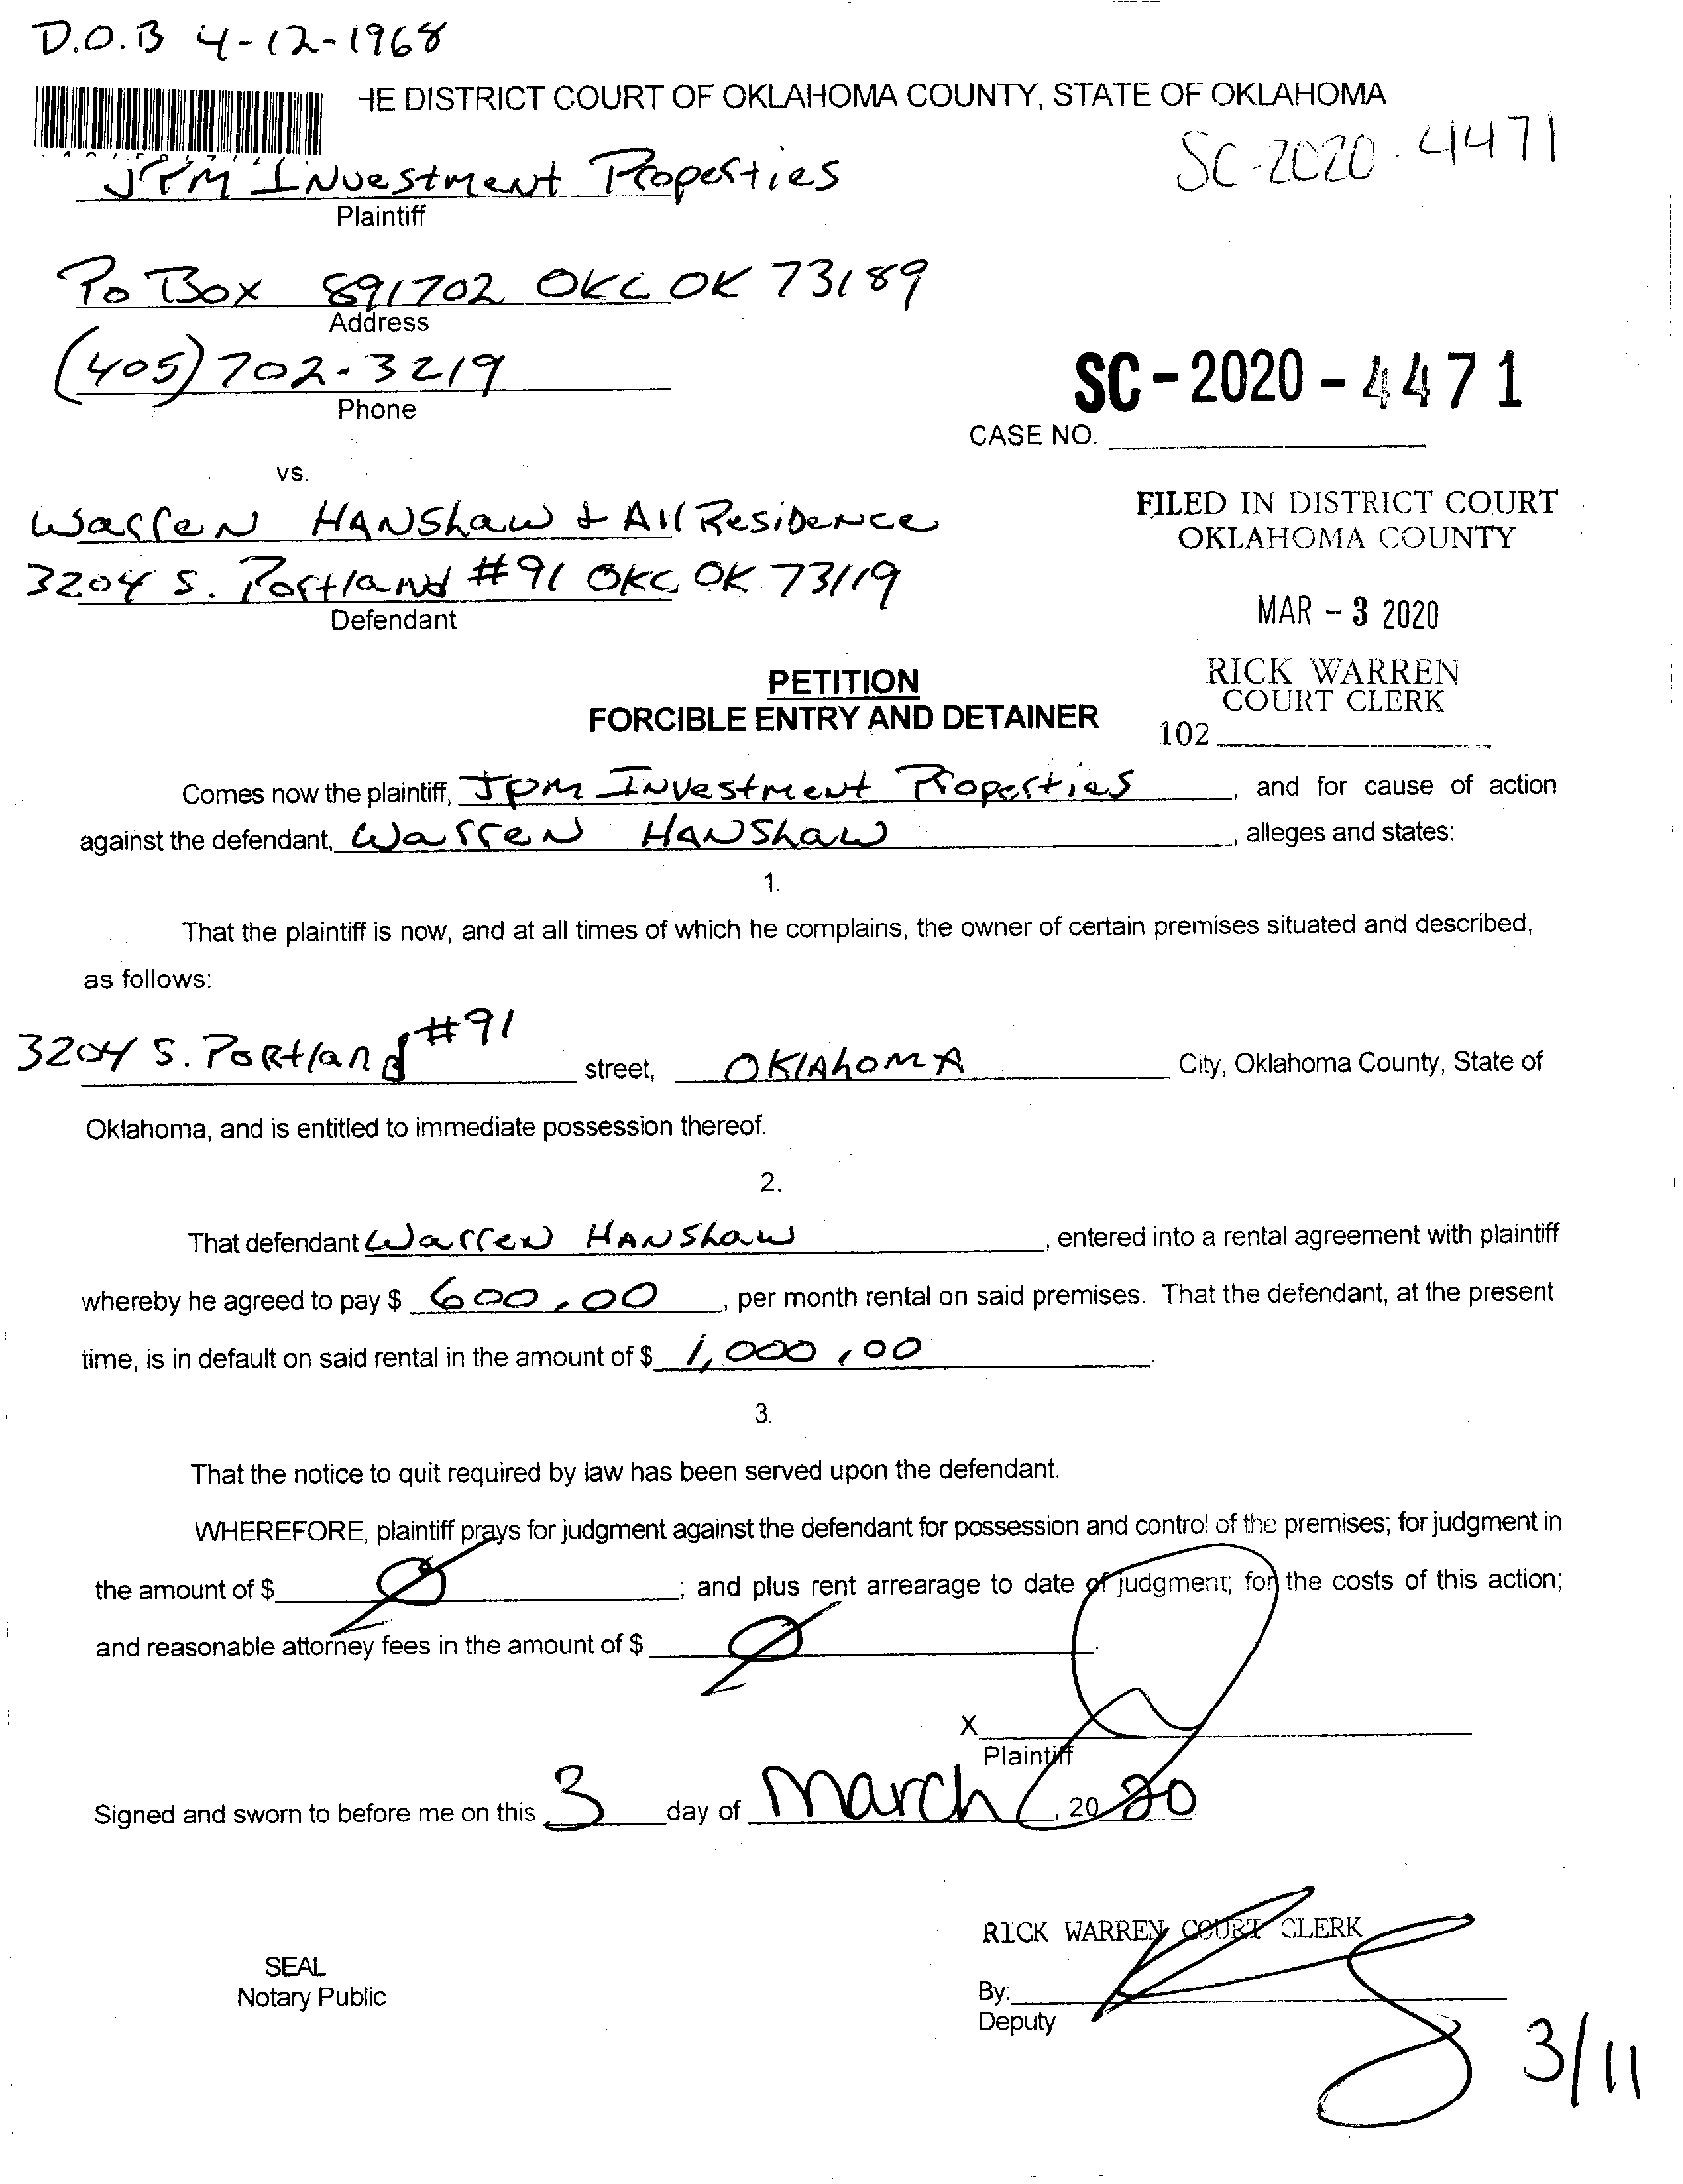 D.O.B 4-12-1968
HE DISTRICT COURT OF OKLAHOMA COUNTY, STATE OF OKLAHOMA
SC-2020-4471
JPM Investment Properties
Plaintiff
Po Box 891702 OKC OK 73189
Address
(405) 702-3219
Phone
SC-2020-4471
CASE NO.
vs.
Warren Hanshaw & All Residence
3204 S. Portland #91 OKC OK 73119
Defendant
FILED IN DISTRICT COURT
OKLAHOMA COUNTY
MAR - 3 2020
RICK WARREN
COURT CLERK
102
PETITION
FORCIBLE ENTRY AND DETAINER
Comes now the plaintiff, Jpm Investment Properties, and for cause of action
against the defendant, Warren Hanshaw, alleges and states:
1.
That the plaintiff is now, and at all times of which he complains, the owner of certain premises situated and described,
as follows:
3204 S. Portland #91 street, Oklahoma City, Oklahoma County, State of
Oklahoma, and is entitled to immediate possession thereof.
2.
That defendant Warren Hanshaw, entered into a rental agreement with plaintiff
whereby he agreed to pay $ 600.00, per month rental on said premises. That the defendant, at the present
time, is in default on said rental in the amount of $ 1,000.00.
3.
That the notice to quit required by law has been served upon the defendant.
WHEREFORE, plaintiff prays for judgment against the defendant for possession and control of the premises; for judgment in
the amount of $ 0; and plus rent arrearage to date of judgment; for the costs of this action;
and reasonable attorney fees in the amount of $ 0.
X
Plaintiff
Signed and sworn to before me on this 3 day of March, 2020
RICK WARREN COURT CLERK
SEAL
Notary Public
By:
Deputy
3/11